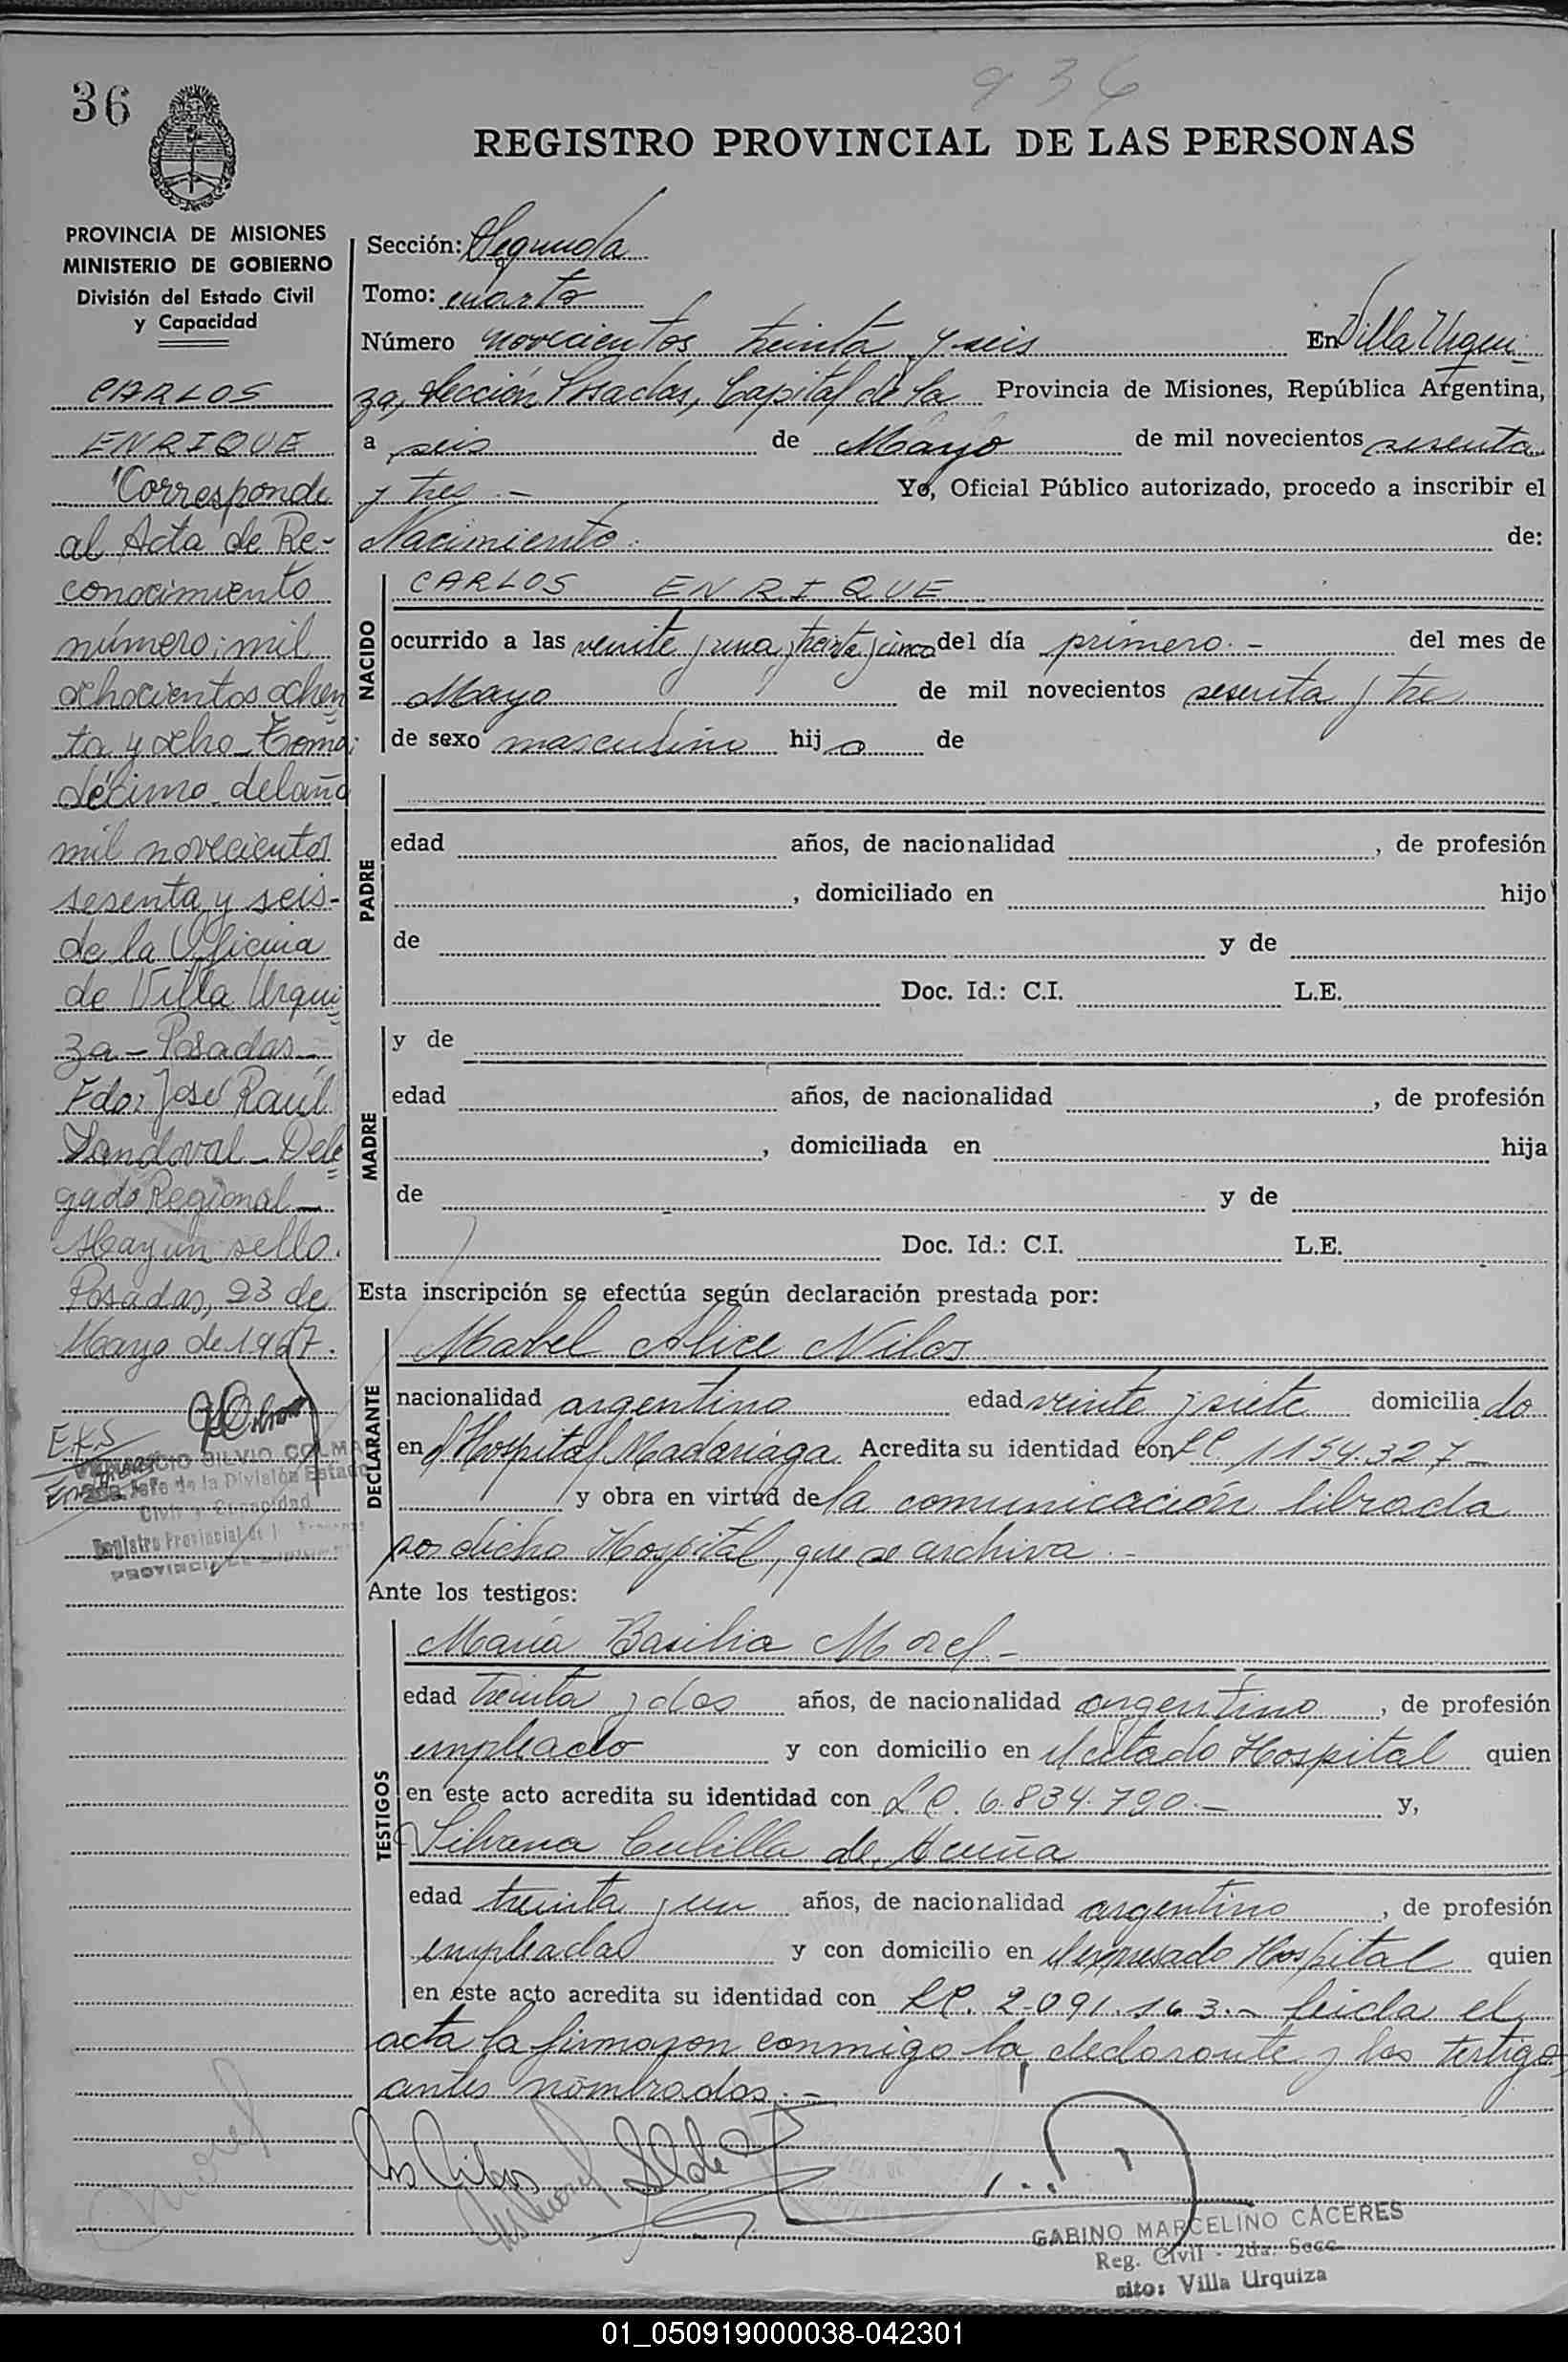 936
36
REGISTRO PROVINCIAL DE LAS PERSONAS
PROVINCIA DE MISIONES
MINISTERIO DE GOBIERNO
División del Estado Civil
y Capacidad
CARLOS
ENRIQUE
Corresponde
al Acta de Re-
conocimiento
número: mil
ochocientos ochen
ta y ocho Tomo:
décimo del año
mil novecientos
sesenta y seis-
de la Oficina
de Villa Urqui
za - Posadas
Fdo: José Raúl
Sandoval - Dele
gado Regional -
Hay un sello.
Posadas, 23 de
Mayo de 1967.
E.K.S
SILVIO COLMA
Jefe de la División Estado
Civil y Capacidad
Registro Provincial de
Sección: Segunda
Tomo: cuarto
Número novecientos treinta y seis En Villa Urqui-
za, Sección Posadas, Capital de la Provincia de Misiones, República Argentina,
a seis de Mayo de mil novecientos sesenta
y tres.- Yo, Oficial Público autorizado, procedo a inscribir el
Nacimiento. de:
NACIDO
CARLOS ENRIQUE
ocurrido a las veinte y una y treinta y cinco del día primero.- del mes de
Mayo de mil novecientos sesenta y tre
de sexo masculino hijo de
PADRE
edad años, de nacionalidad , de profesión
, domiciliado en hijo
de y de
Doc. Id.: C.I. L.E.
MADRE
y de
edad años, de nacionalidad , de profesión
, domiciliada en hija
de y de
Doc. Id.: C.I. L.E.
Esta inscripción se efectúa según declaración prestada por:
DECLARANTE
Mabel Alice Nilos
nacionalidad argentina edad veinte y siete domiciliado
en Hospital Madariaga Acredita su identidad con LC 1154.327-
y obra en virtud de la comunicación librada
por dicho Hospital, que se archiva.-
Ante los testigos:
TESTIGOS
María Basilia Morel.-
edad treinta y dos años, de nacionalidad argentino , de profesión
empleado y con domicilio en el citado Hospital quien
en este acto acredita su identidad con LC. 6.834.790.- y,
Silvana Cubilla de Acuña
edad treinta y un años, de nacionalidad argentino , de profesión
empleada y con domicilio en el expresado Hospital quien
en este acto acredita su identidad con LC. 2.091.163.- leida el
acta la firmaron conmigo la declarante y los testigos
antes nombrados.-
GABINO MARCELINO CÁCERES
Reg. Civil - 2da. Secc
sito: Villa Urquiza
01_050919000038-042301